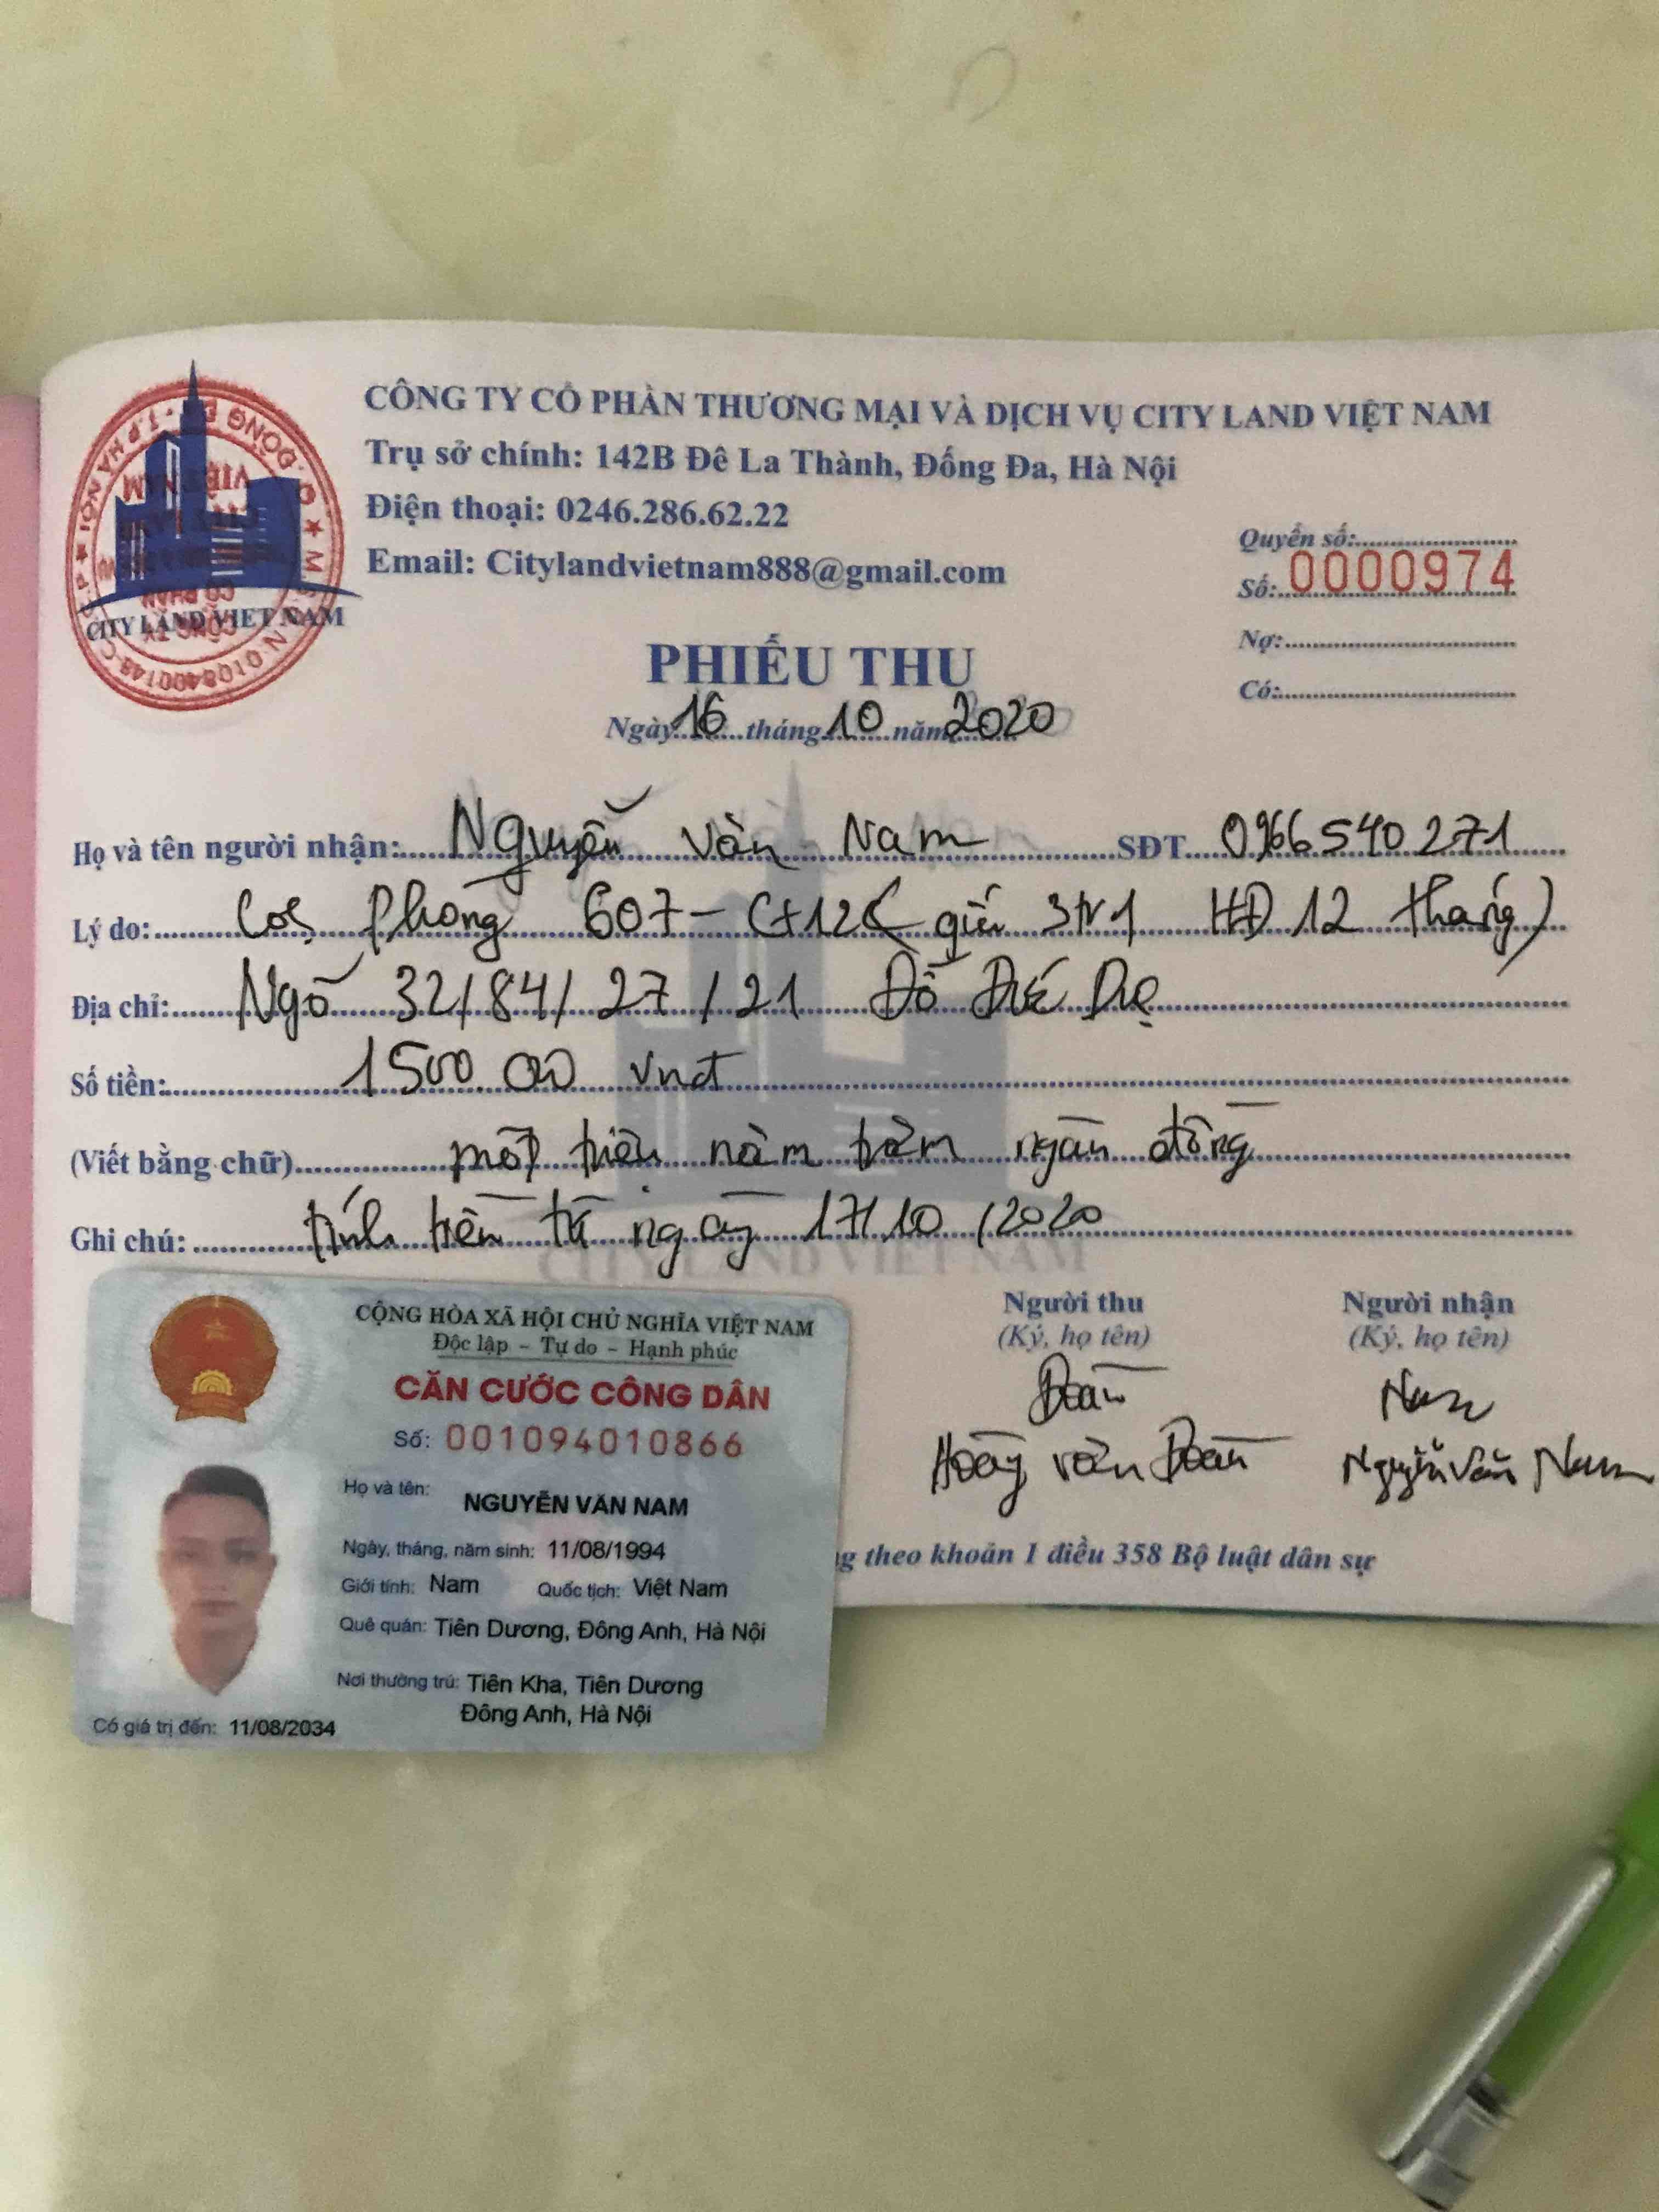 CÔNG TY CỔ PHẦN THƯƠNG MẠI VÀ DỊCH VỤ CITY LAND VIỆT NAM
Trụ sở chính: 142B Đê La Thành, Đống Đa, Hà Nội
Điện thoại: 0246.286.62.22
Email: Citylandvietnam888@gmail.com
CITY LAND VIET NAM
Quyển số:
Số: 0000974
Nợ:
Có:
PHIẾU THU
Ngày 16 tháng 10 năm 2020
Họ và tên người nhận: Nguyễn Văn Nam SĐT 0966540271
Lý do: Cọc phòng 607 - CT12C giá 3tr1 HĐ 12 tháng)
Địa chỉ: Ngõ 32/84/27/21 Đỗ Đức Dục
Số tiền: 1500.00 vnđ
(Viết bằng chữ) một triệu năm trăm ngàn đồng
Ghi chú: tính tiền từ ngày 17/10/2020
Người thu Người nhận
(Ký, họ tên) (Ký, họ tên)
Đoàn Nam
Hoàng văn Đoàn Nguyễn Văn Nam
theo khoản 1 điều 358 Bộ luật dân sự
CỘNG HÒA XÃ HỘI CHỦ NGHĨA VIỆT NAM
Độc lập - Tự do - Hạnh phúc
CĂN CƯỚC CÔNG DÂN
Số: 001094010866
Họ và tên: NGUYỄN VĂN NAM
Ngày, tháng, năm sinh: 11/08/1994
Giới tính: Nam Quốc tịch: Việt Nam
Quê quán: Tiên Dương, Đông Anh, Hà Nội
Nơi thường trú: Tiên Kha, Tiên Dương
Đông Anh, Hà Nội
Có giá trị đến: 11/08/2034